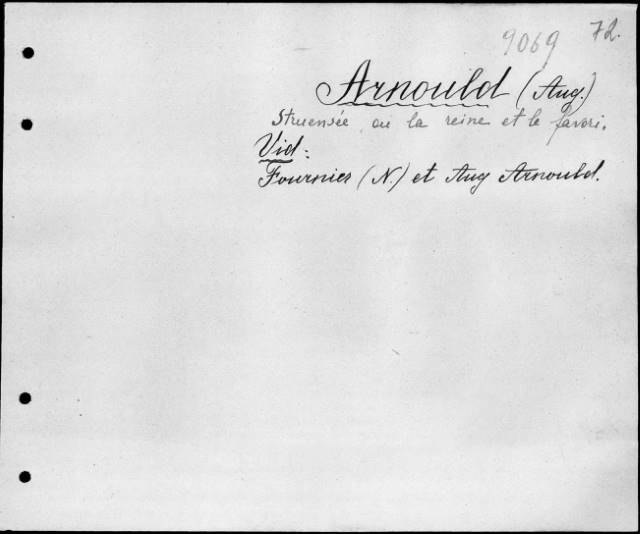 9069 72.
Arnould (Aug.)
Struensée ou la reine et le favori.
Vid:
Fournier (N.) et Aug Arnould.